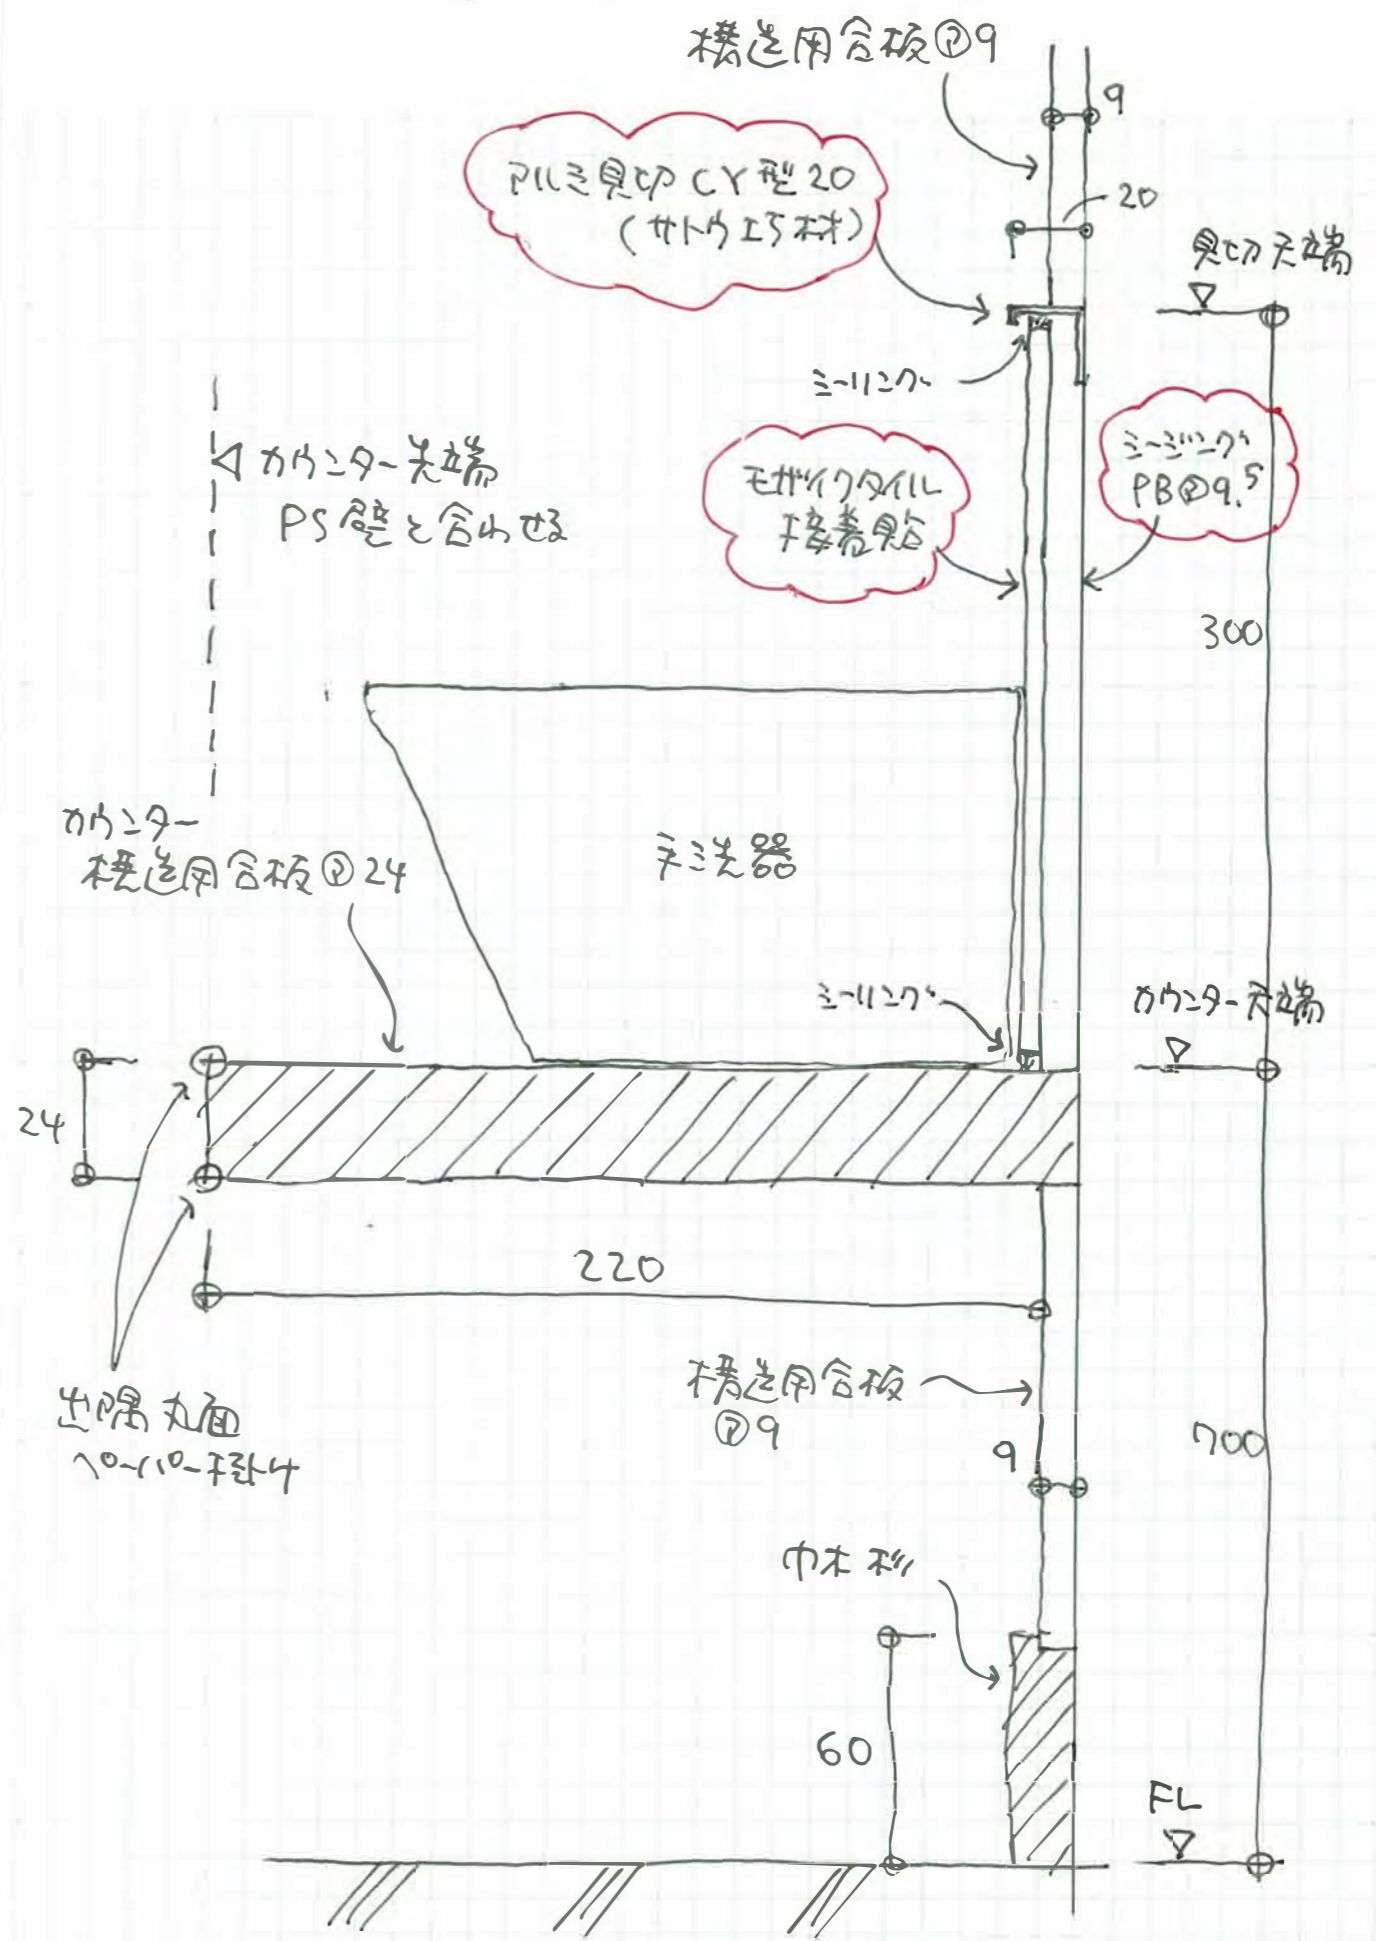 構造用合板㋐9
9
アルミ見切 CY型20
(サトウ巧材)
20
見切天端
シーリング
カウンター先端
PS壁と合わせる
モザイクタイル
接着貼
シージング
PB㋐9.5
300
カウンター
構造用合板㋐24
手洗器
シーリング
カウンター天端
24
220
出隅丸面
ペーパー掛ケ
構造用合板
㋐9
9
700
巾木 杉
60
FL